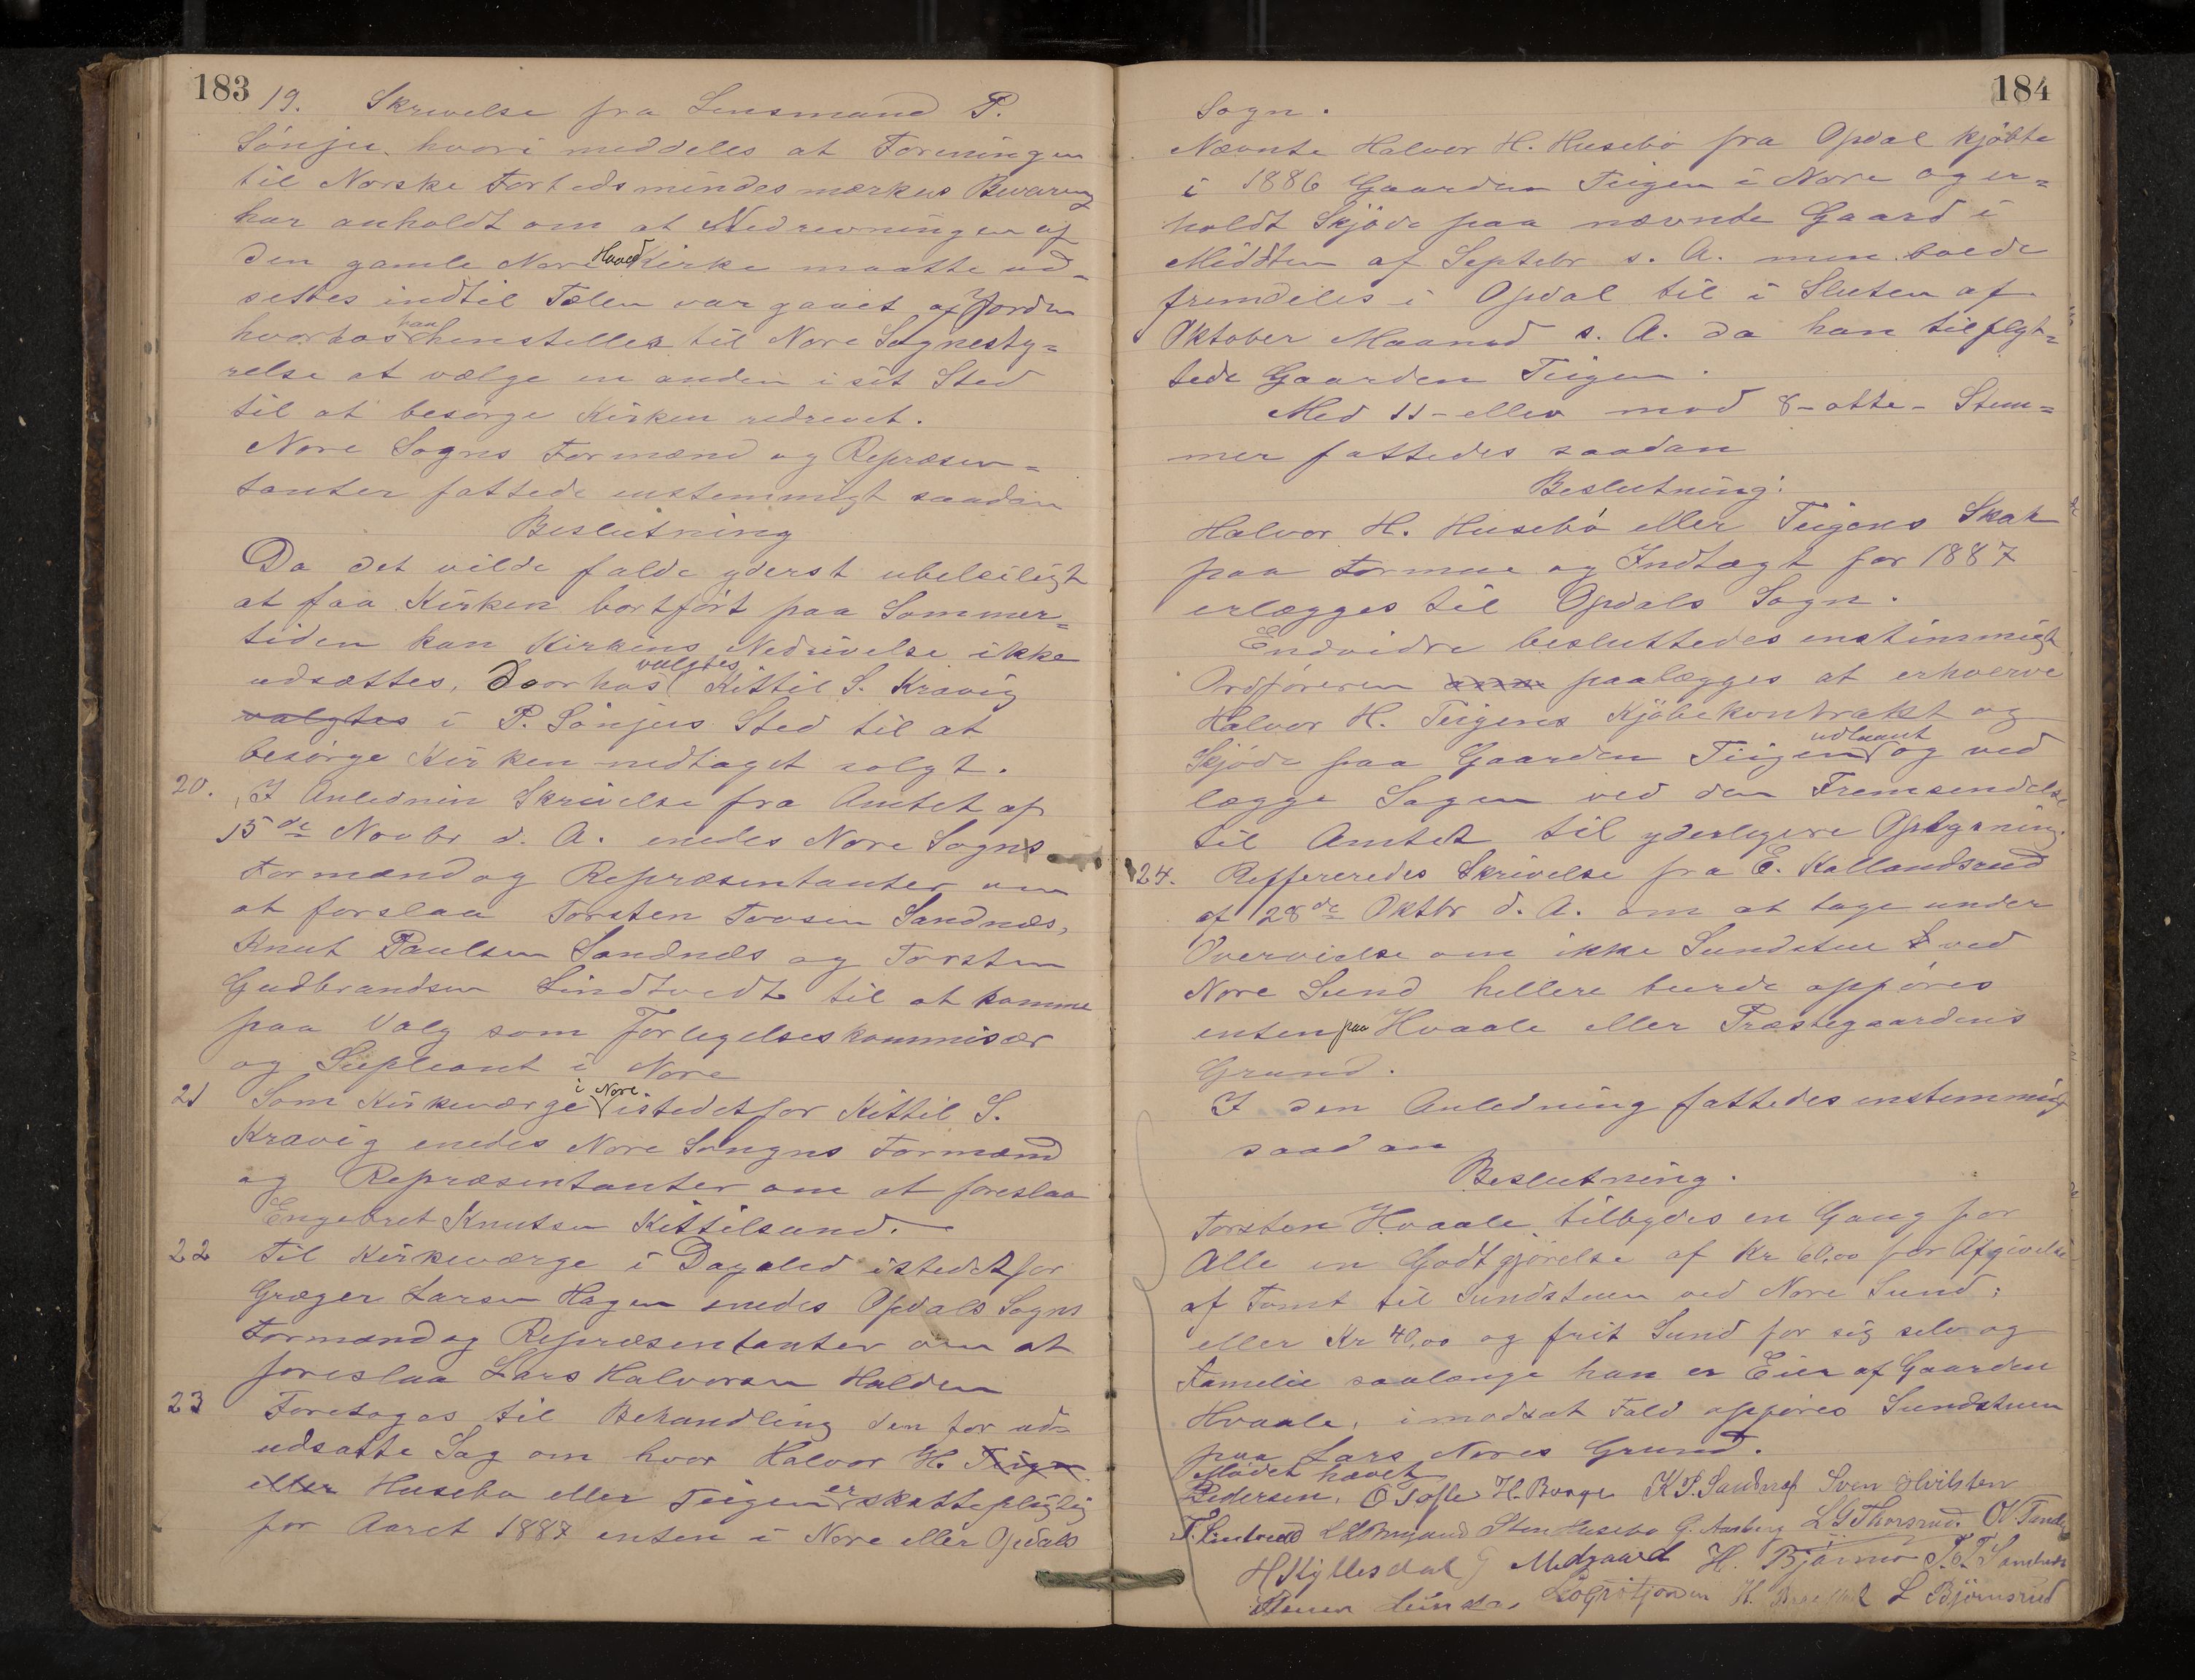 183
19. Skrivelse fra Lensmand P.
Sönju hvori meddeles at Foreningen
til Norske Fortidsmindesmærkers Bevaring
har anholdt om at Nedrevningen af
den gamle Nore Hoved Kirke maatte ud-
settes indtil Tælen var gaaet af Jorden
hvorhos han henstilles til Nore Sognesty=
relse at vælge en anden i sit Sted
til at besørge Kirken nedrevet.
Nore Sogns Formænd og Repræsen=
tanter fattede enstemmigt saadan
Beslutning
Da det vilde falde yderst ubeleiligt
at faa Kirken bortført paa Sommer=
tiden kan Kirkens Nedrivelse ikke
udsættes, Doorhos valgtes Kittil S. Kravig
valgtes i P. Sönjus Sted til at
besörge Kirken nedtaget solgt.
20. I Anlednin Skrivelse fra Amtet af
15de Novbr d. A. enedes Nore Sogns
Formænd og Repræsentanter om
at forslaa Torsten Tovsen Sandnæs,
Knut Paulsen Sandnæs og Torsten
Gudbrandsen Sindtvedt til at komme
paa Valg som Forlegelseskommisær
og Supleant i Nore
21 Som Kirkeværge i Nore istedetfor Kittil S.
Kravig enedes Nore Songns Formænd
og Repræsentanter om at foreslaa
Engebret Knutsen Kittilsund.
22 Til Kirkeværge i Dagalid istedetfor
Græger Larsen Hagen enedes Opdals Sogns
Formænd og Repræsentanter om at
foreslaa Lars Halvorsen Halden
23 Foretoges til Behandling den før ud-
udsatte Sag om hvor Halvor H. Teigen
eller Husebø eller Teigen er skattepligtig
for Aaret 1887 enten i Nore eller Opdals
184
Sogn.
Nævnte Halvor H. Husebö fra Opdal kjöbte
i 1886 Gaarden Teigen i Nore og er=
holdt Skjöde paa nævnte Gaard i
Midten af Septebr s. A. men boede
fremdeles i Opdal til i Sluten af
Oktober Maaned s. A. da han tilflyt=
tede Gaarden Teigen.
Med 11 - ellev mod 8 - otte - Stem=
mer fattedes saadan
Beslutning:
Halvor H. Husebö eller Teigens Skat
paa Formue og Indtægt for 1887
erlægges til Opdals Sogn.
Endvidre besluttedes enstimmigt
Ordföreren paalægges at erhverve
Halvor H. Teigens Kjöbekontrakt og
Skjöde paa Gaarden Teigen udlaant og ved
lægge Sagen ved den Fremsendelse
til Amtet til yderligere Oplysning.
24. Reffereredes Skrivelse fra E. Kallandsrud
af 28de Oktbr d. A. om at tage under
Overveielse om ikke Sundstue ved
Nore Sund hellere burde opføres
enten paa Hvaale eller Præstegaardens
Grund.
I den Anledning fattedes enstemmigt
saadan
Beslutning.
Torsten Hvaale tilbydes en Gang for
Alle en Godtgjörelse af Kr 60,00 for Afgivelse
af Tomt til Sundstuen ved Nore Sund;
eller Kr 40,00 og frit Sund for sig selv og
Familie saalænge han er Eier af Gaarden
Hvaale, i modsat Fald opföres Sundstuen
paa Lars Nores Grund.
Mödet hævet
Pedersen, O Tofte H. Borge K P. Sandnæs Sven Hvilsten
Sten Husebø G. Aasberg L G Thorsrud O V. Tande
H Kyllesdal G Medgaard H. Bjørnmo T. T. Sandnæs
L Björnsrud